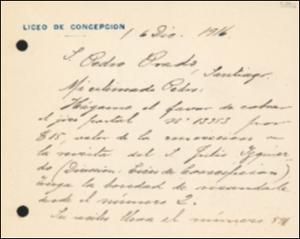 LICEO DE CONCEPCION
16 Dic. 1916
S. Pedro Prado,
Santiago.
Mi estimado Pedro:
Hágame el favor de cobrar
el jiro postal N° 13353 por
$15, valor de la suscricion a
la revista del S. Julio
(Direccion: Liceo de Concepcion)
tenga la bondad de mandarle
desde el número 2.
el número